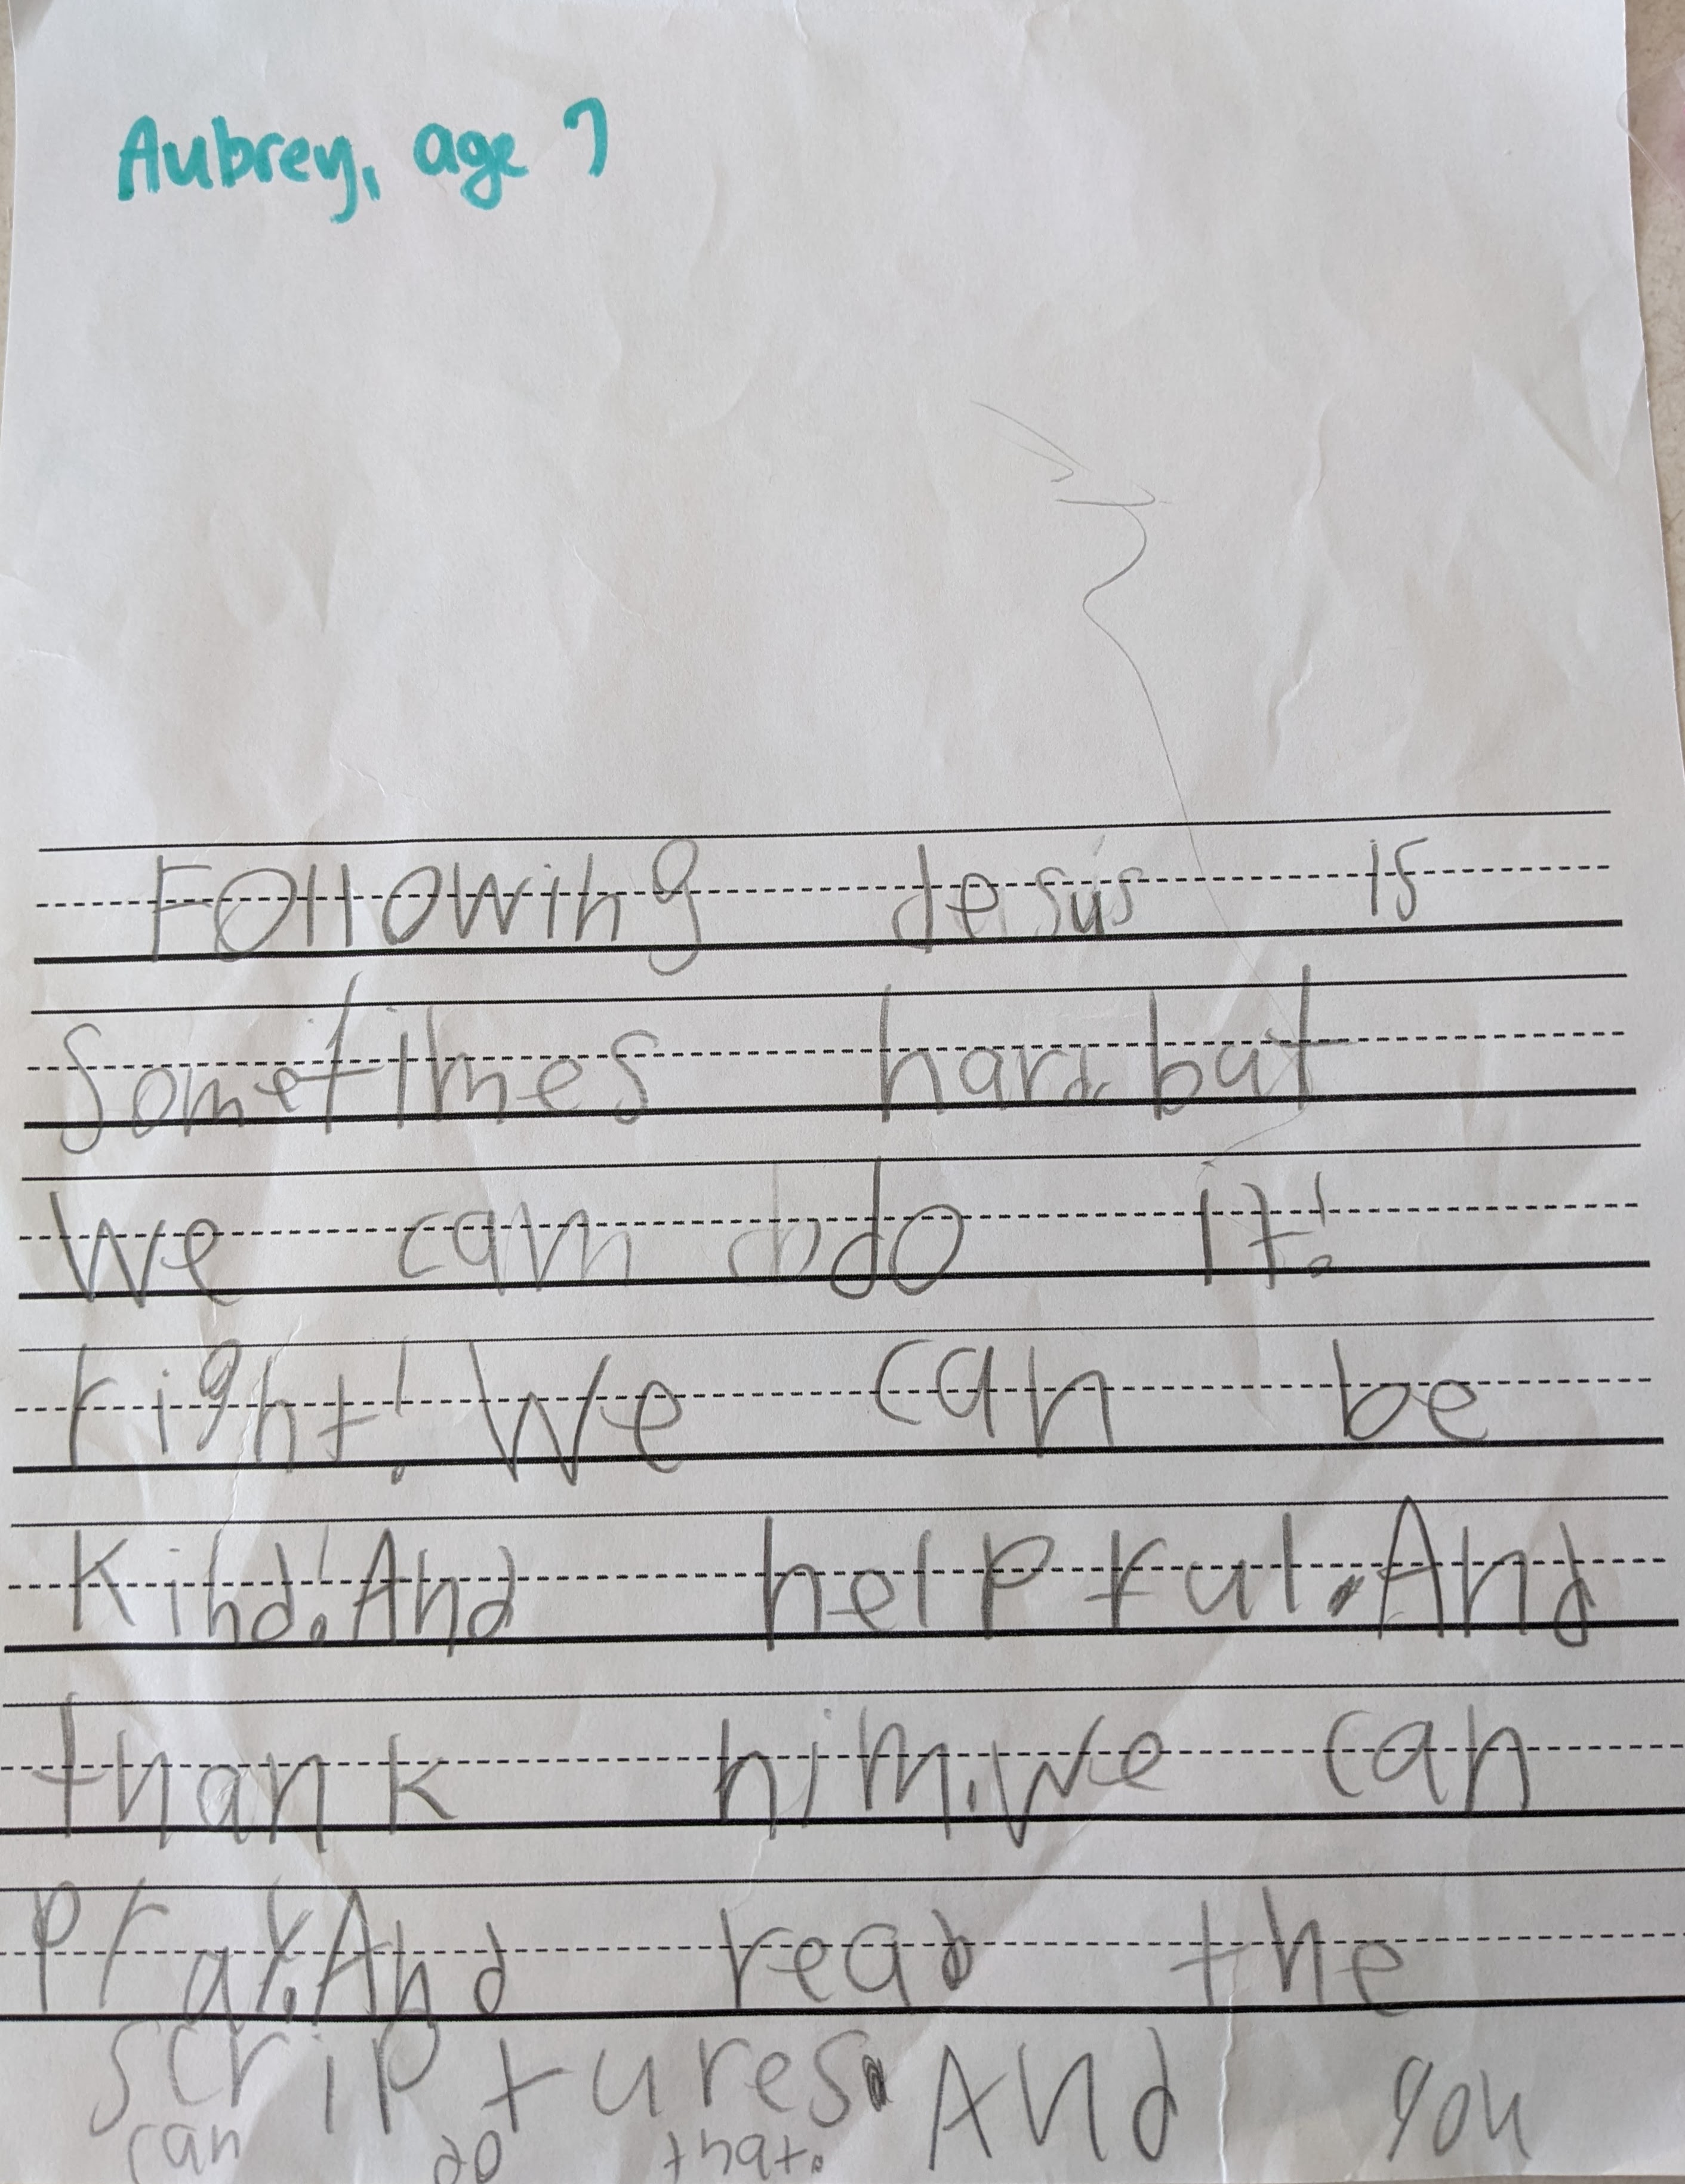 Aubrey, age 7
Following Jesus is
Sometimes hard but
We can do it!
right! We can be
Kind! And helpful. And
thank him. We can
Pray. And read the
Scriptures. And you
can do that.